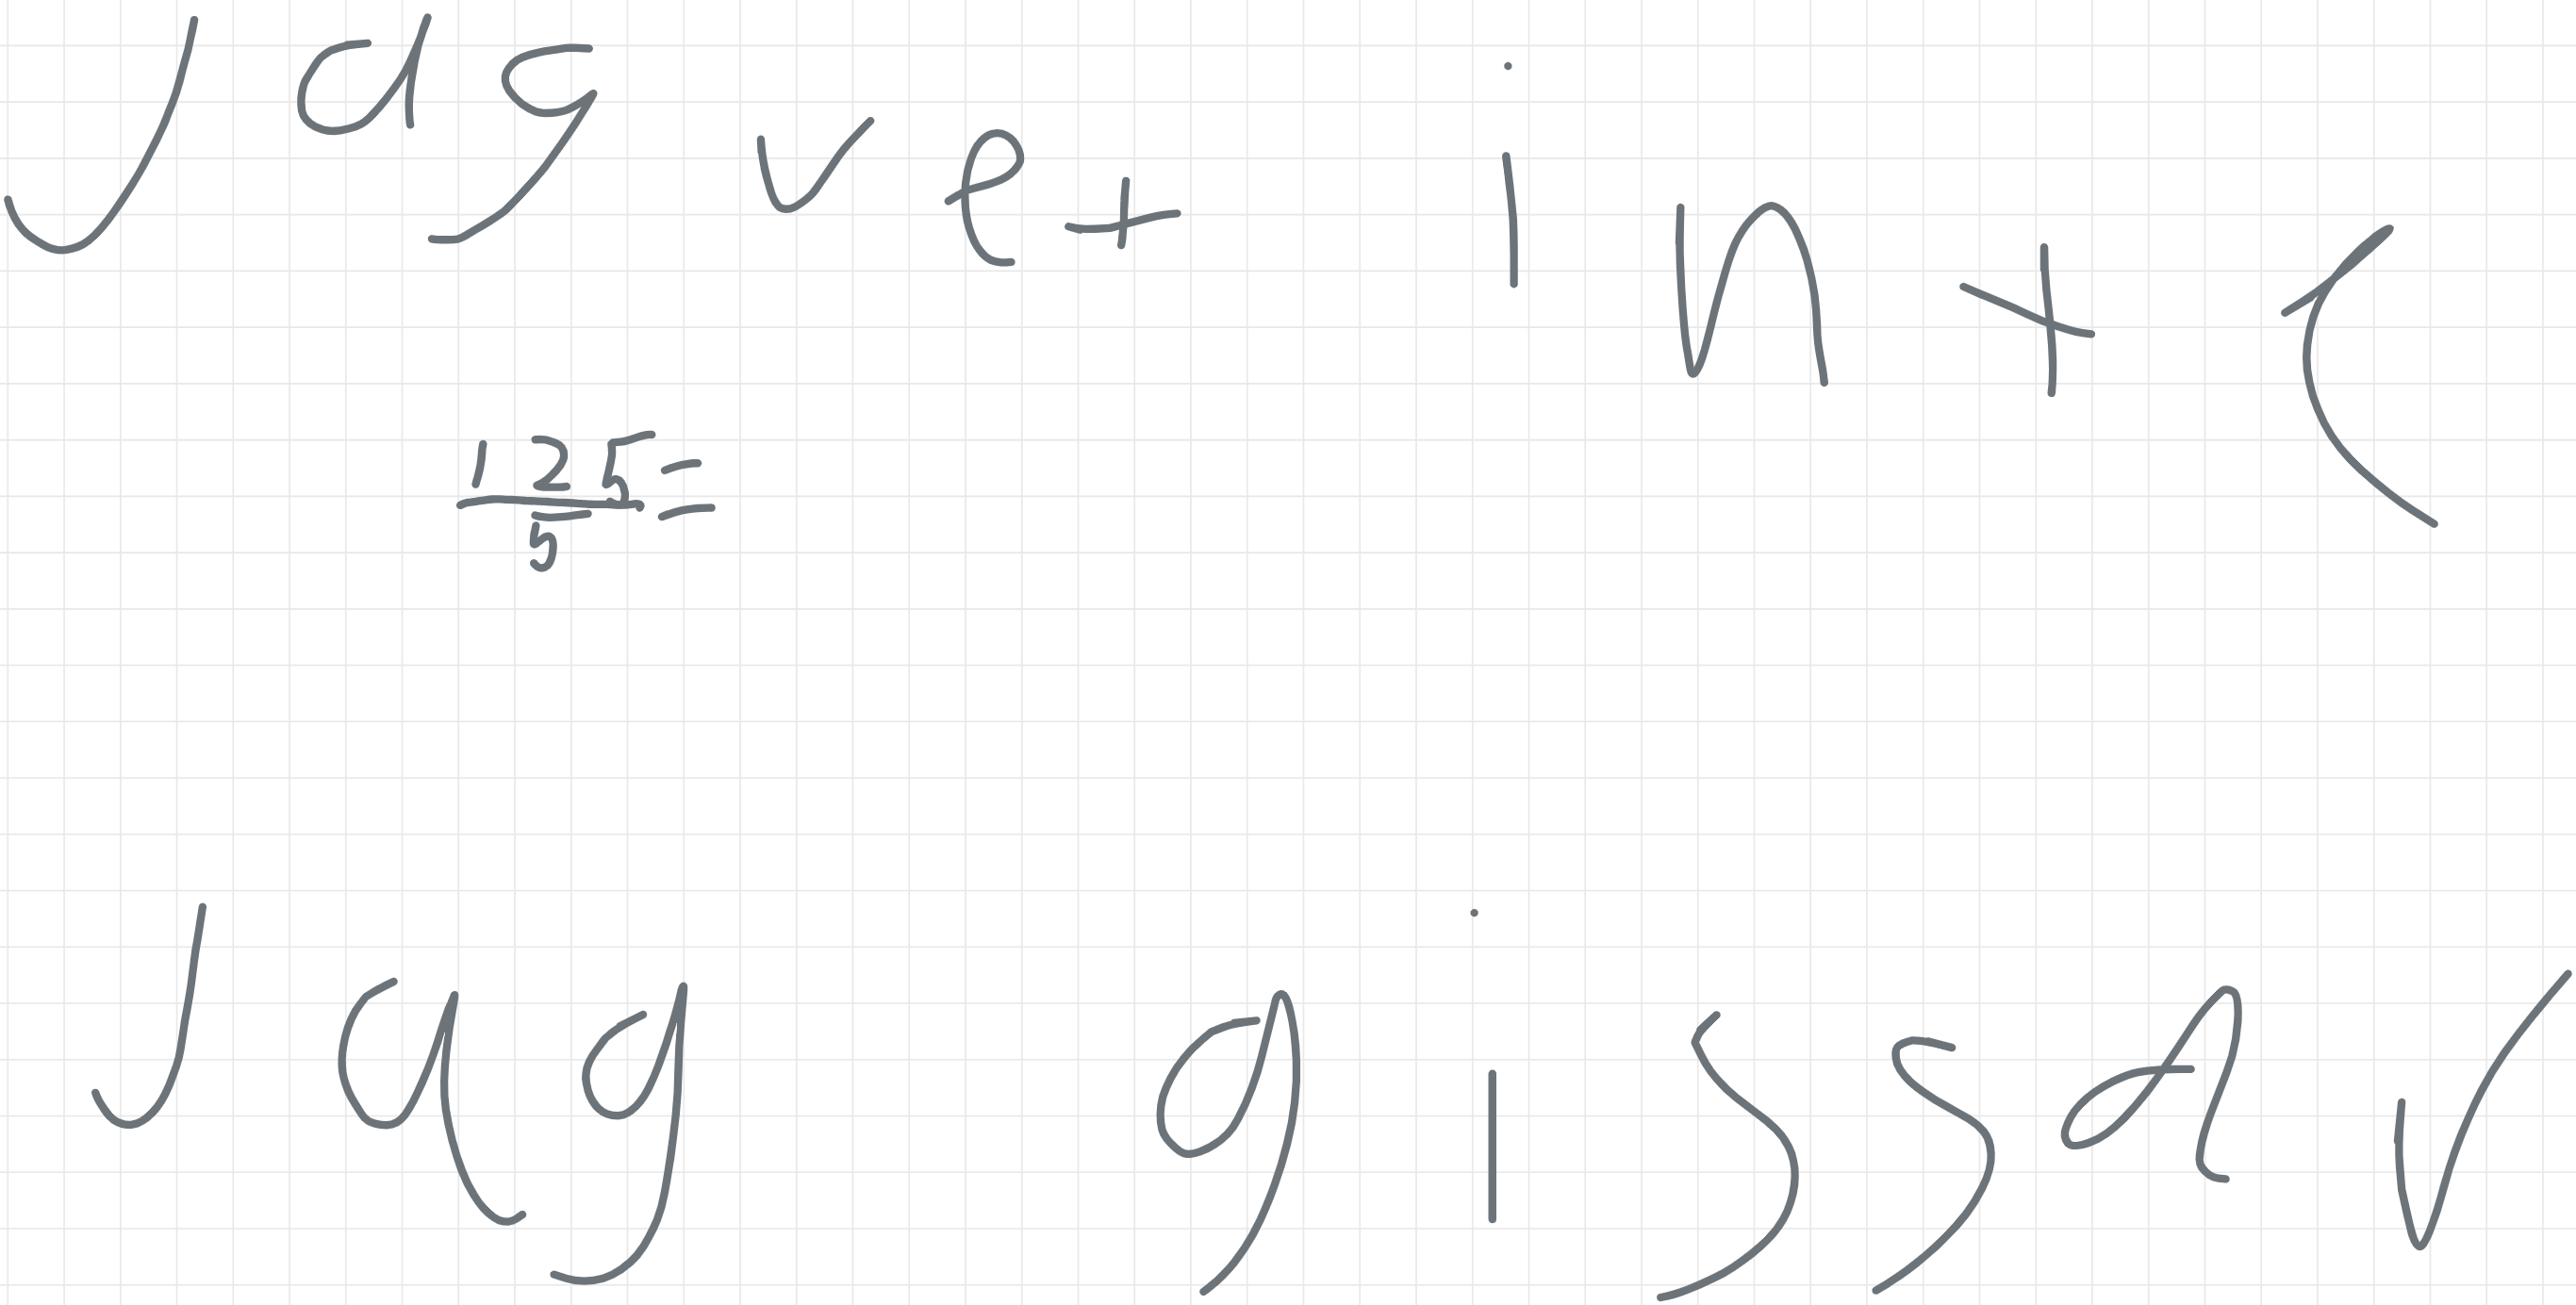 Jag vet int(
125/5=
Jag gissar